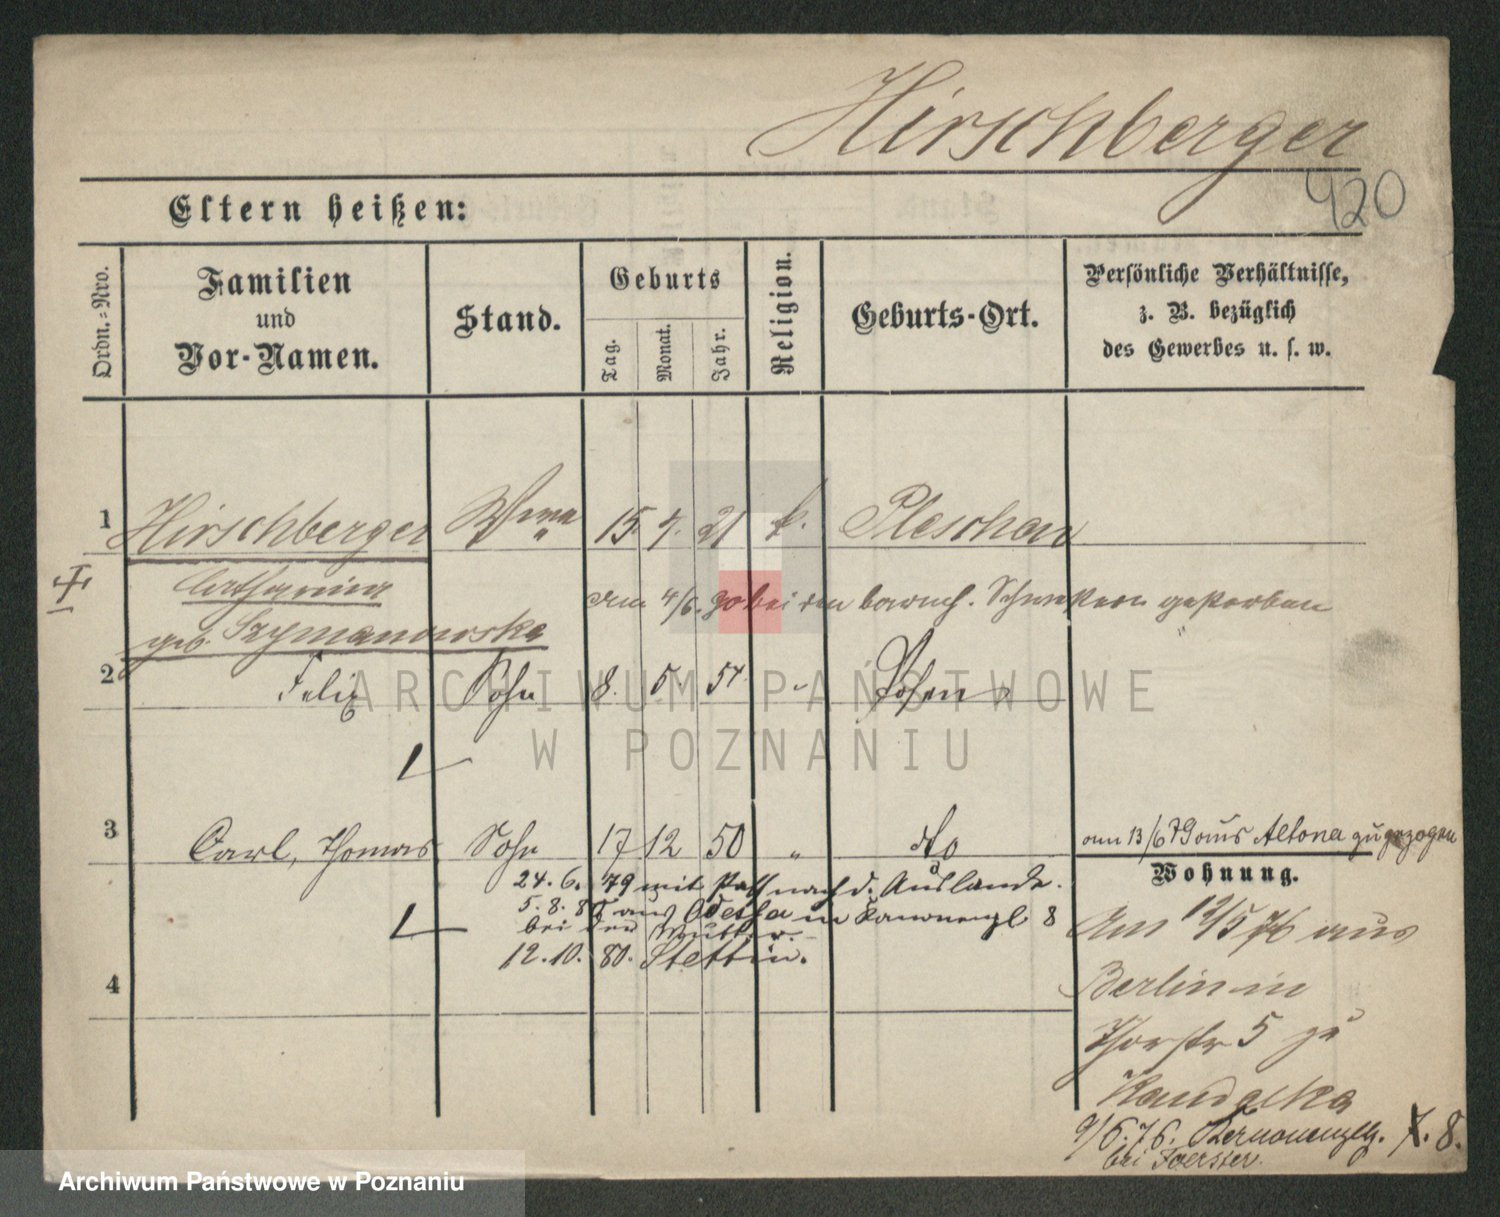 Hirschberger
920
Eltern heißen:
Ordn.-Nro.
Familien
und
Vor-Namen.
Stand.
Geburts
Tag.
Monat.
Jahr.
Religion.
Geburts-Ort.
Persönliche Verhältnisse,
z. B. bezüglich
des Gewerbes u. s. w.
1 Hirschberger Wwe 15. 4. 21 k. Pleschen
Catharina
am 4/6. 90 bei den barmh. Schwestern gestorben
geb. Szymanowska
2 Felix Sohn 8. 5 54 " Posen
3 Carl, Thomas Sohn 17 12 50 " do am 13/6 79 aus Altona zugezogen
Wohnung.
24. 6. 79 mit Paß nach d. Auslande.
5. 8. 80 aus Odessa in Kanonenpl 8
bei der Mutter.
12. 10. 80. Stettin.
4
Am 12/5 76 aus
Berlin in
Thorstr 5 zu
9/6. 76. Kanonenpltz. 7. 8.
bei Foerster.
ARCHIWUM PAŃSTWOWE
W POZNANIU
Archiwum Państwowe w Poznaniu